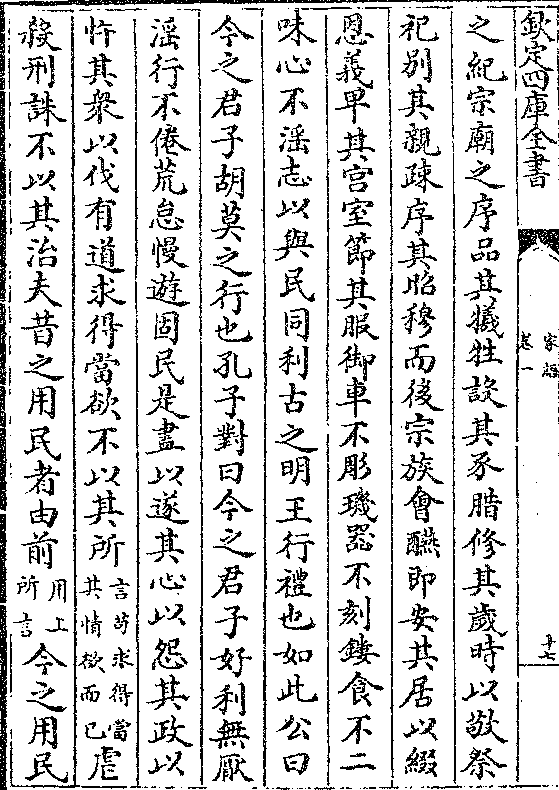 欽定四庫全書
家語
卷一
十七
之紀宗廟之序品其犧牲設其豕腊修其歲時以敬祭
祀别其親疎序其昭穆而後宗族會醼即安其居以綴
恩義卑其宫室節其服御車不彫璣器不刻鏤食不二
味心不淫志以與民同利古之明王行禮也如此公曰
今之君子胡莫之行也孔子對曰今之君子好利無厭
淫行不倦荒怠慢遊固民是盡以遂其心以怨其政以
忤其衆以伐有道求得當欲不以其所言苟求得當其情欲而已虐
殺刑誅不以其治夫昔之用民者由前用上所言今之用民